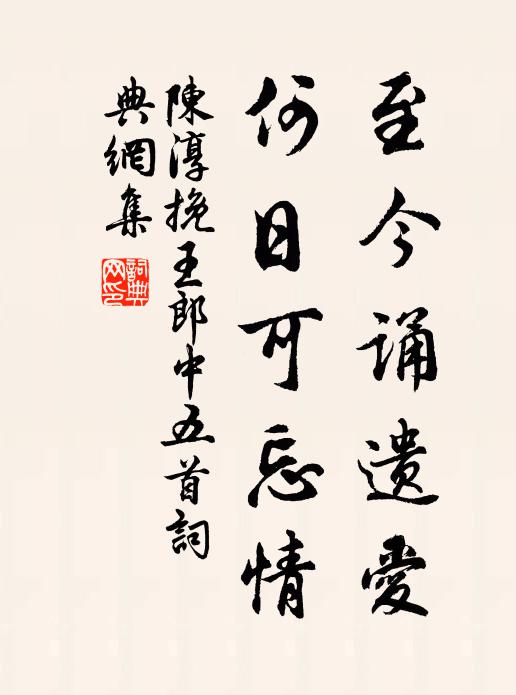 至今诵遗愛
何日可忘情
陳淳挽王郎中五首詞
典網集
詞典
网印